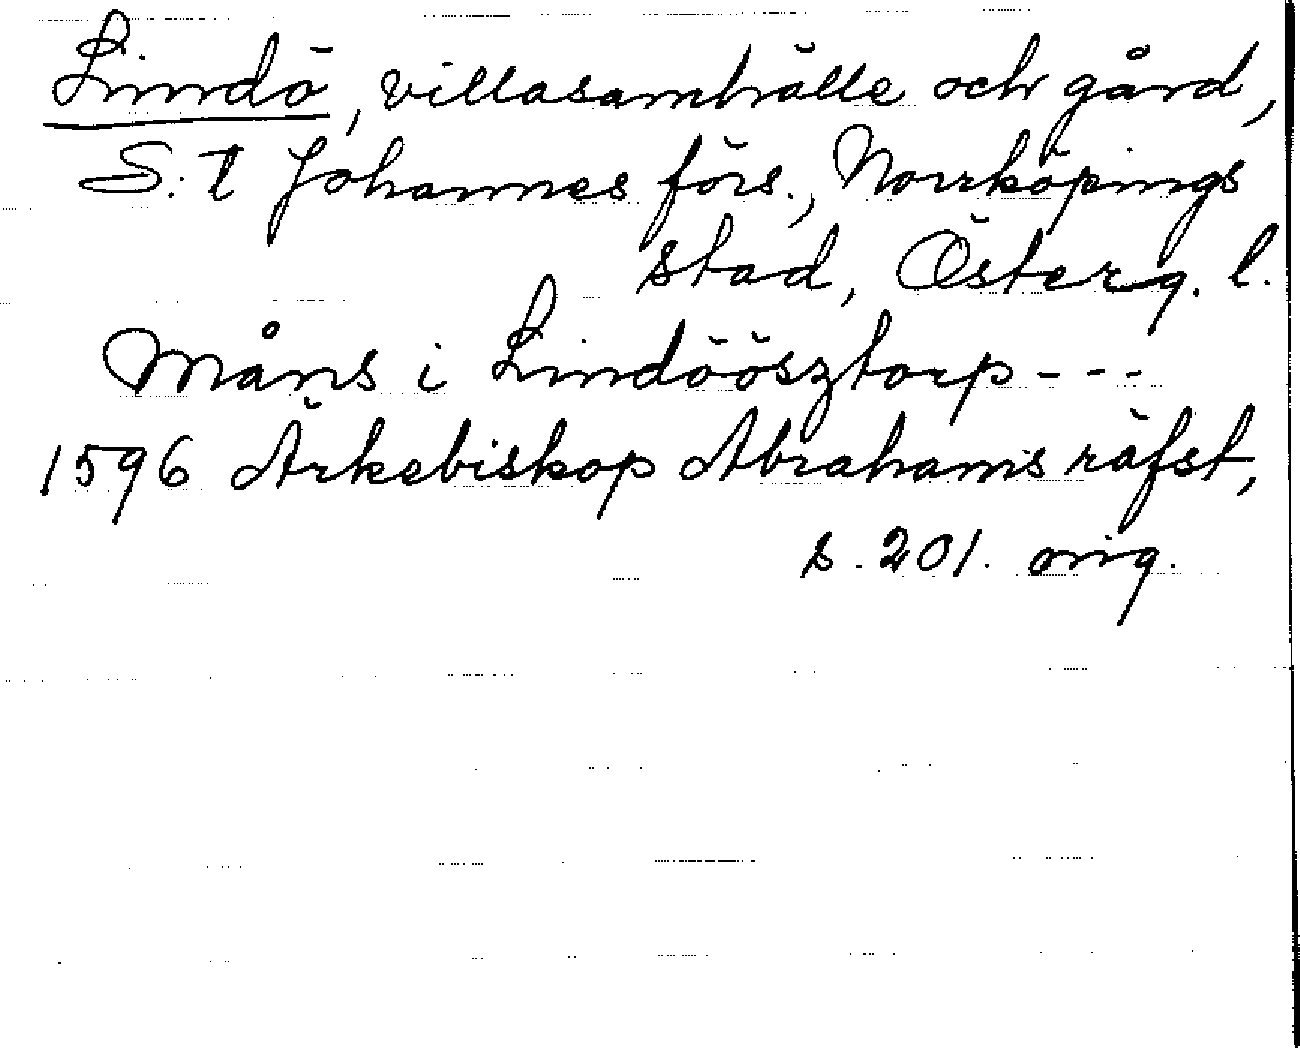 Lindö, villasamhälle och gård,
S:t Johannes förs., Norrköpings
stad, Österg. l.
Måns i Lindöösztorp---
1596 Ärkebiskop Abrahams räfst,
s. 201. orig.